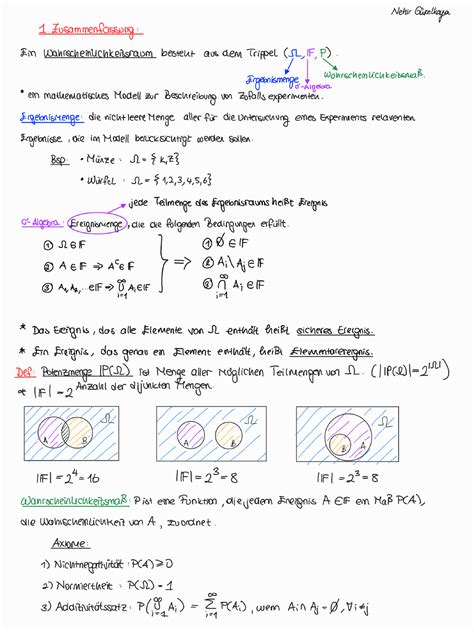 Nehir Güzelkaya
1 Zusammenfassung:
Ein Wahrscheinlichkeitsraum besteht aus dem Trippel (Ω, IF, P).
Ergebnismenge
σ-Algebra
Wahrscheinlichkeitsmaß.
* ein mathematisches Modell zur Beschreibung von Zufallsexperimenten.
Ergebnismenge: die nichtleere Menge aller für die Untersuchung eines Experiments relevanten
Ergebnisse, die im Modell berücksichtigt werden sollen.
Bsp: • Münze: Ω = {K,Z}
• Würfel: Ω = {1,2,3,4,5,6}
jede Teilmenge des Ergebnisraums heißt Ereignis
σ-Algebra: Ereignismenge, die die folgenden Bedingungen erfüllt.
① Ω ∈ IF
② A ∈ IF ⇒ Aᶜ ∈ IF
③ A₁, A₂, ... ∈ IF ⇒ ⋃_{i=1}^∞ Aᵢ ∈ IF
⟹
① ∅ ∈ IF
② Aᵢ \ Aⱼ ∈ IF
③ ⋂_{i=1}^∞ Aᵢ ∈ IF
* Das Ereignis, das alle Elemente von Ω enthält heißt sicheres Ereignis.
* Ein Ereignis, das genau ein Element enthält, heißt Elementarereignis.
Def: Potenzmenge IP(Ω) ist Menge aller möglichen Teilmengen von Ω. (|IP(Ω)| = 2^|Ω|)
* |IF| = 2^Anzahl der dijunkten Mengen.
A B Ω
A B Ω
A B Ω
|IF| = 2⁴ = 16
|IF| = 2³ = 8
|IF| = 2³ = 8
Wahrscheinlichkeitsmaß: P ist eine Funktion, die jedem Ereignis A ∈ IF ein Maß P(A),
die Wahrscheinlichkeit von A, zuordnet.
Axiome:
1) Nichtnegativität: P(A) ≥ 0
2) Normiertheit: P(Ω) = 1
3) Additivitätssatz: P(⋃_{i=1}^∞ Aᵢ) = ∑_{i=1}^∞ P(Aᵢ), wenn Aᵢ ∩ Aⱼ = ∅, ∀ i ≠ j